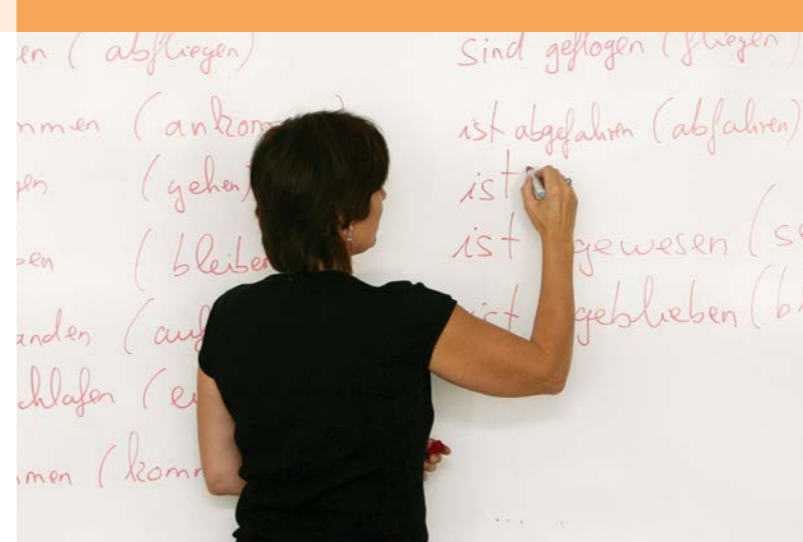 en (abfliegen)
mmen (ankom
(gehen)
(bleiben
anden (auf
chlafen (e
mmen (komm
sind geflogen (fliegen)
ist abgefahren (abfahren)
ist
ist gewesen (se
ist geblieben (b